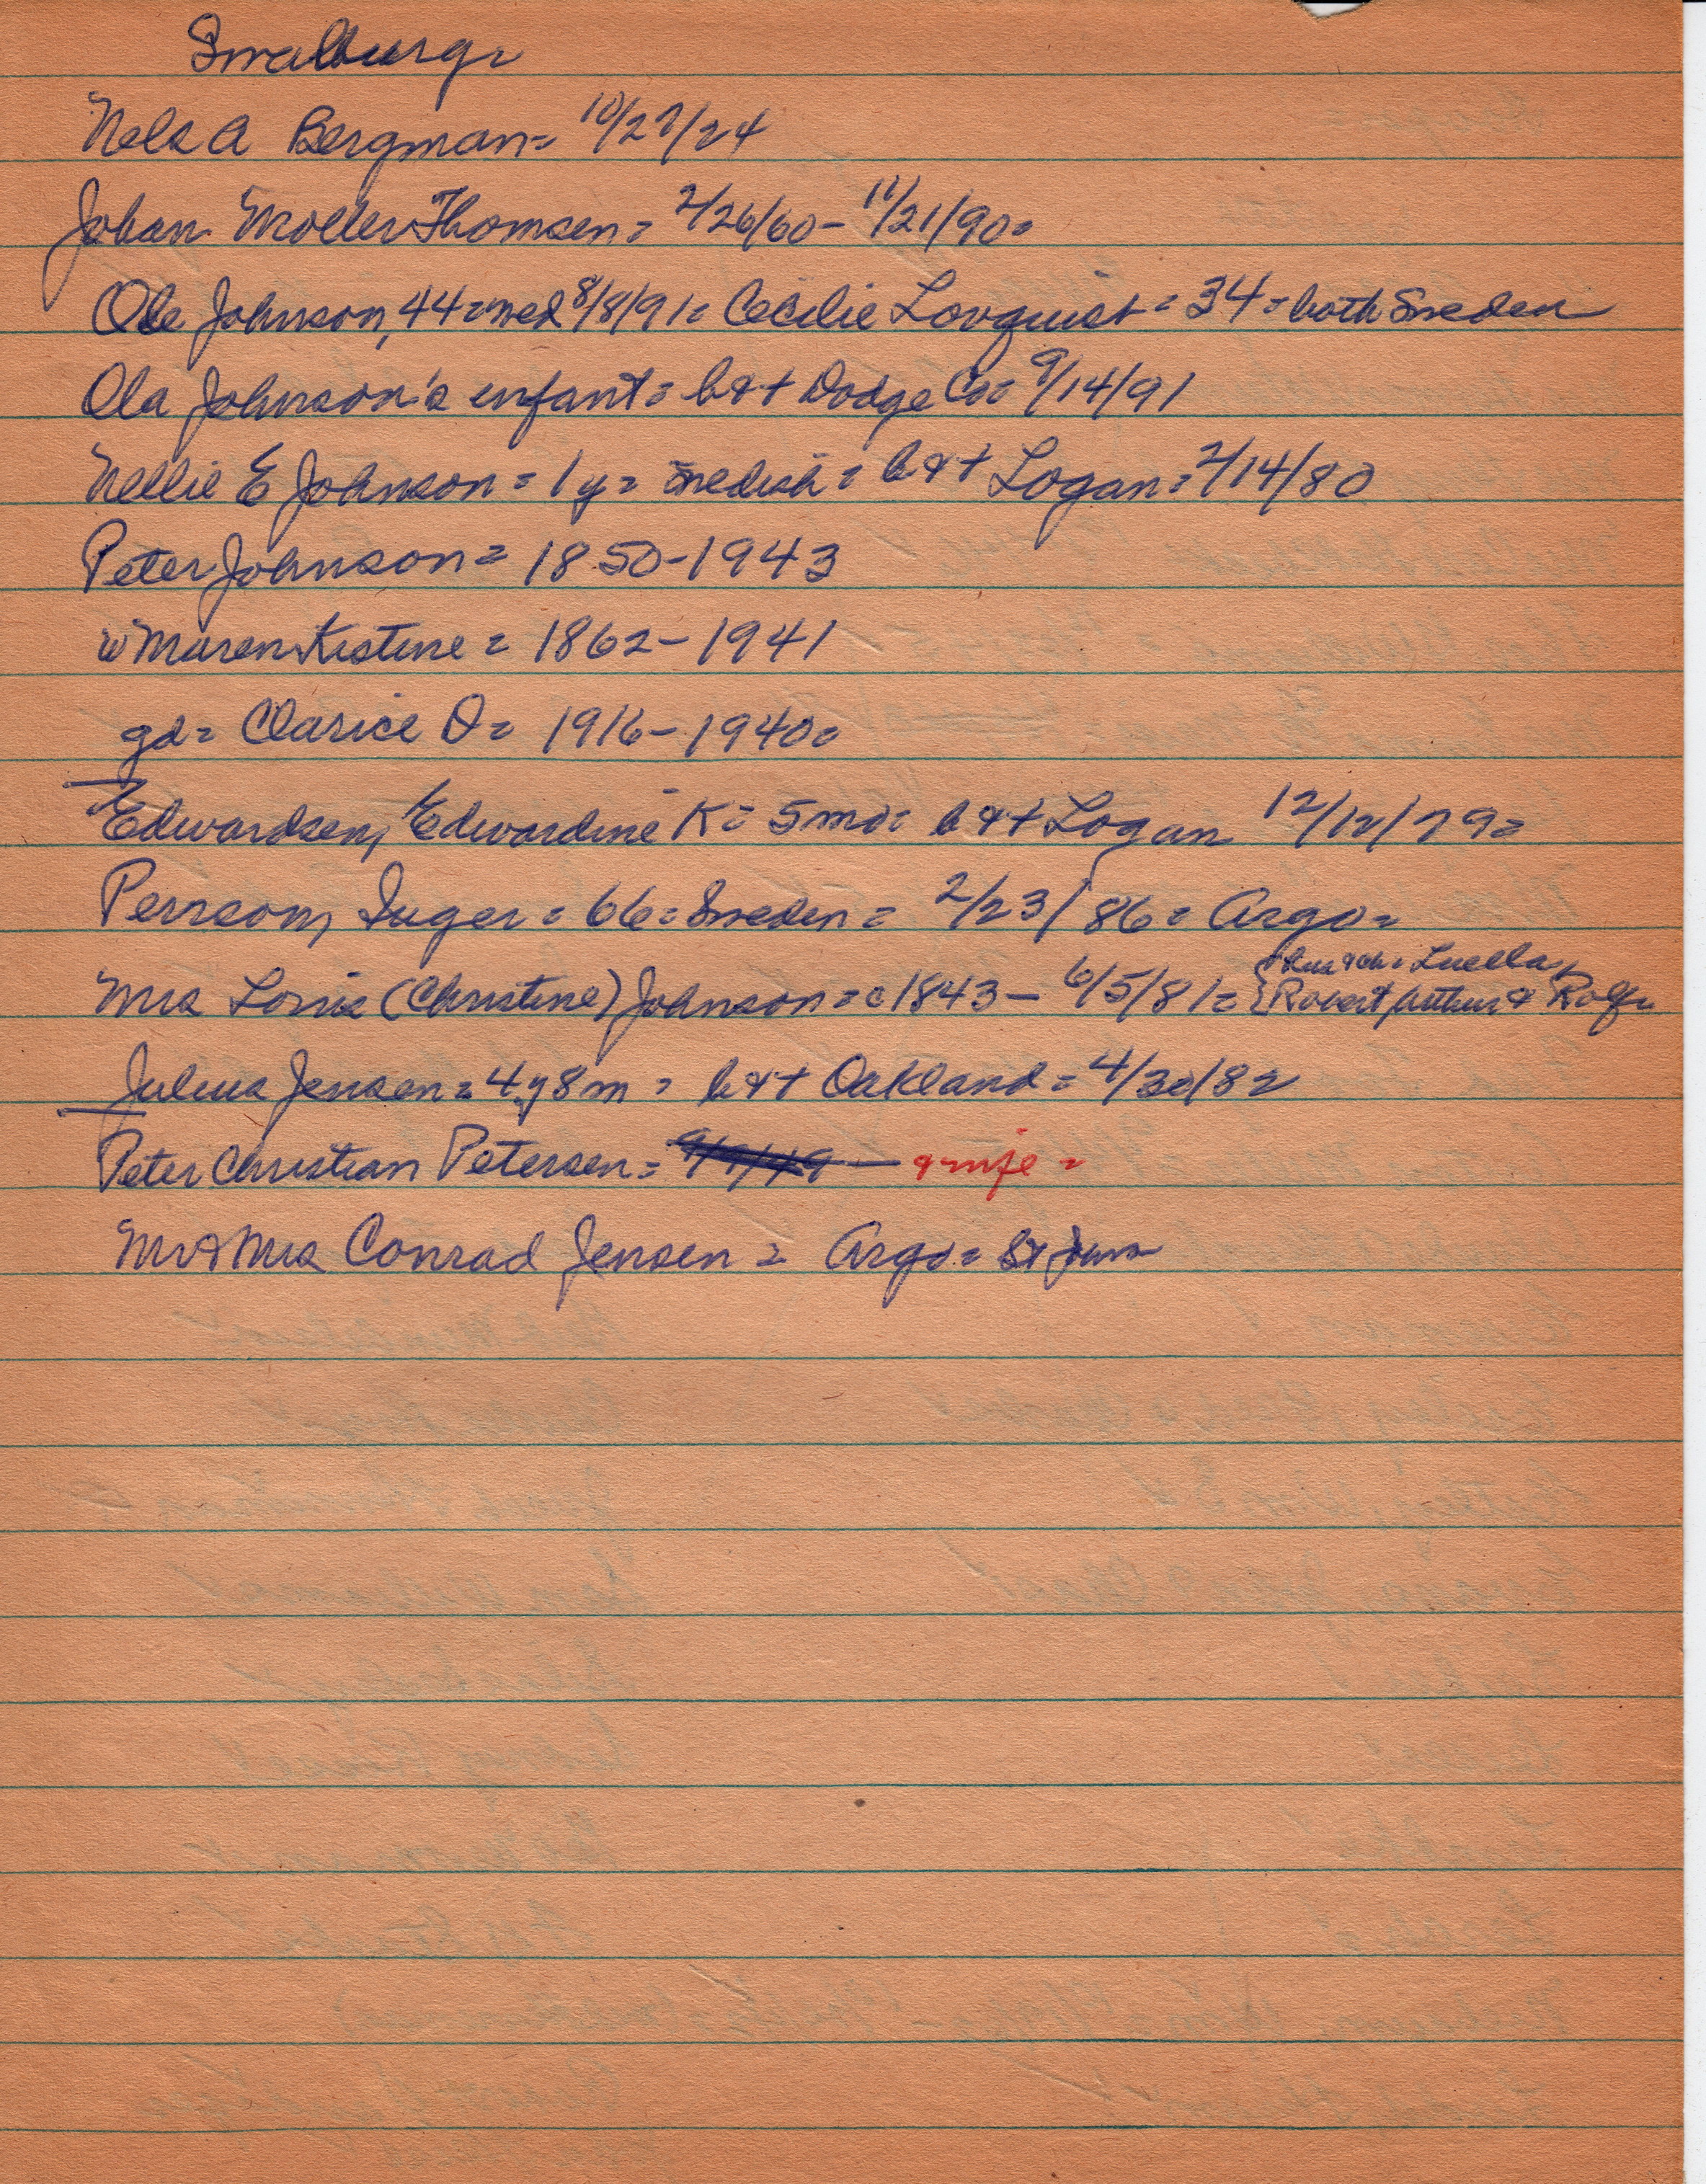 Swaburg
Nels A Bergman= 10/27/24
Johan Moller Thomsen= 2/26/60- 11/21/90=
Ole Johnson, 44=med 8/8/91= Cecilie Lovquist= 34=both Sweden
Ola Johnson's infant= b&+ Dodge Co= 9/14/91
Nellie E Johnson= 1y= Swedish= b&+ Logan= 2/14/80
Peter Johnson= 1850-1943
w Maren Kistine= 1862-1941
gd= Clarice O= 1916-1940=
Edwardsen, Edwardine K= 5mo= b&+ Logan 12/12/79=
Persson, Inger= 66=Sweden= 2/23/86= Argo=
Mrs Louis (Christine) Johnson= c1843- 6/5/81= {Hus & ch= Luella, Robert, Arthur & Rolf=
Julius Jensen= 4y8m= b&+ Oakland= 4/30/82
Peter Christian Petersen= 9/9/49 - & wife=
Mr & Mrs Conrad Jensen= Argo= St Johns